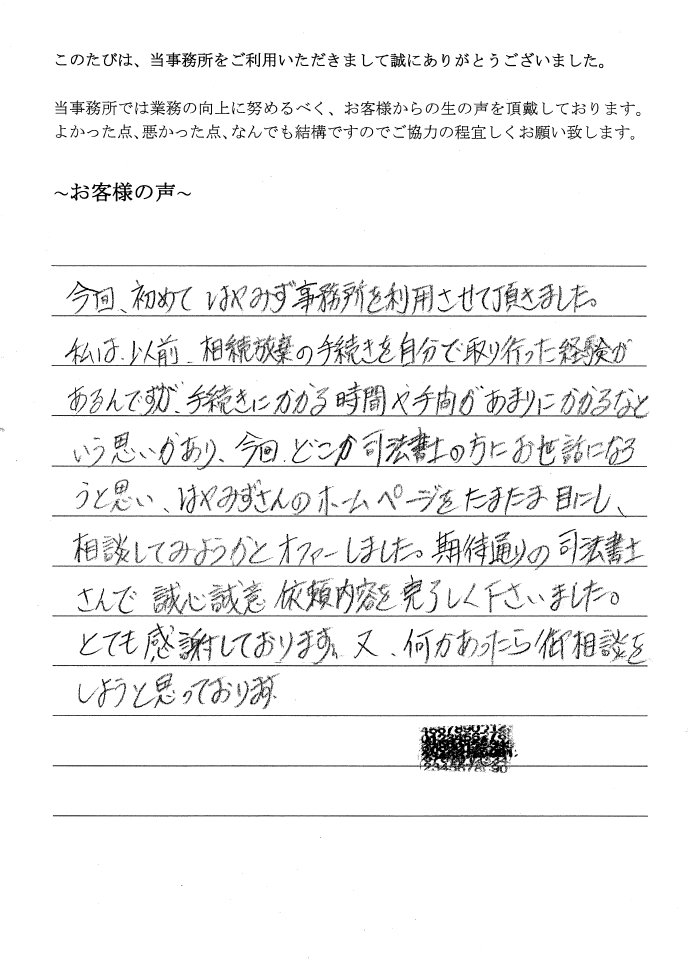 このたびは、当事務所をご利用いただきまして誠にありがとうございました。
当事務所では業務の向上に努めるべく、お客様からの生の声を頂戴しております。
よかった点、悪かった点、なんでも結構ですのでご協力の程宜しくお願い致します。
~お客様の声~
今回、初めて はやみず事務所を利用させて頂きました。
私は、以前、相続放棄の手続きを自分で取り行った経験が
あるんですが、手続きにかかる時間や手間があまりにかかるなと
いう思いがあり、今回、どこか司法書士の方にお世話になろ
うと思い、はやみずさんのホームページをたまたま目にし、
相談してみようかとオファーしました。期待通りの司法書士
さんで 誠心誠意 依頼内容を完了しく下さいました。
とても感謝しております。又、何かあったら御相談を
しようと思っております。